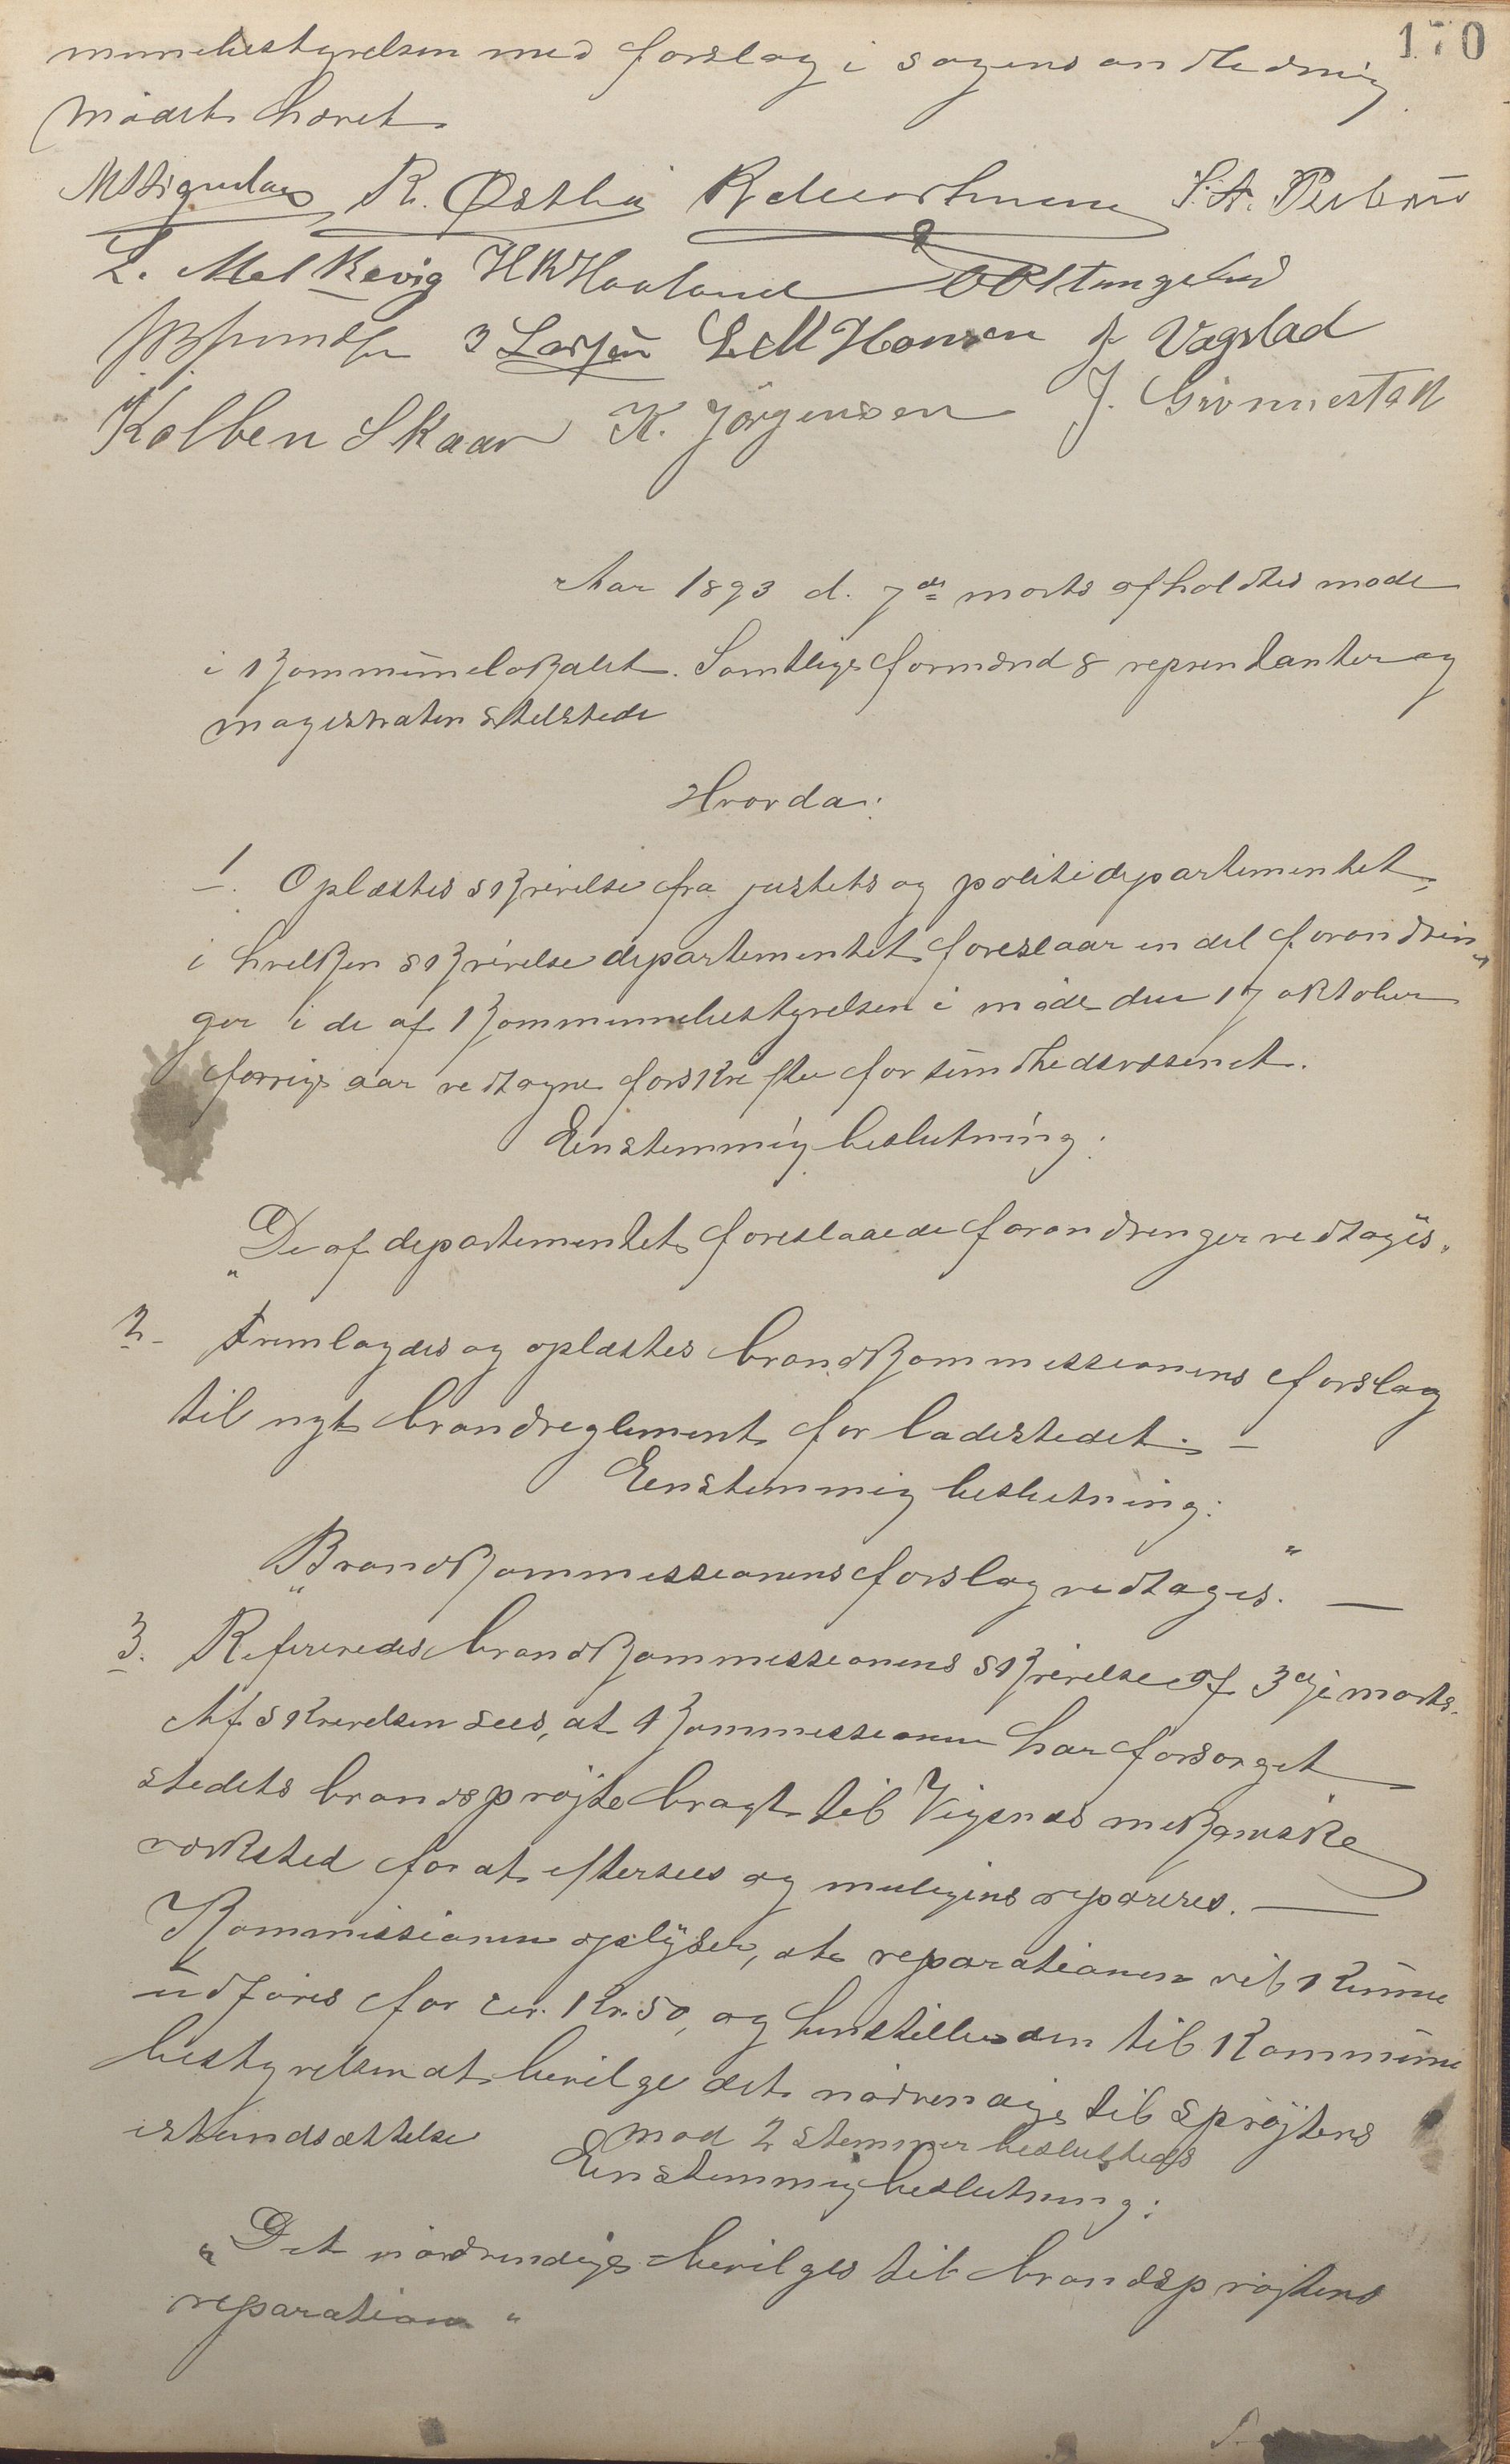 170
munebestyrelsen med forslag i sagens andledning
Mødet hævet
R. Østbø
L. Melkevig HKHaaland OO Stangeland
3 Larsen L M Hansen J Vagslad
Kolben Skaar K. Jörgensen J. Grönnestad
Aar 1893 d. 7de marts afholdtes møde
i kommunelokalet. Samtlige formænd & reprentanter og
magistraten tilstede
Hvorda:
1. Oplæstes skrivelse fra justits og politidepartementet,
i hvilken skrivelse departementet foreslaar en del forandrin-
ger i de af kommunebestyrelsen i møde den 17 oktober
forrige aar vedtagne forskrifter for sundhedsvæsenet.
Eenstemmig beslutning:
"De af departementet foreslaaede forandringer vedtages."
2- Fremlagdes og oplæstes brandkommissionens forslag
til nyt brandreglement for ladestedet. -
Eenstemmig beslutning:
"Brandkommissionens forslag vedtages." —
3. Refereredes brandkommissionens skrivelse af 3dje marts.
Af skrivelsen sees, at kommissionen har forsørget
stedets brandsprøjte bragt til Vigsnæs mekaniske
værksted for at eftersees og muligens repareres. —
Kommissionen oplyser, at reparationen vil kunne
udføres for cir. Kr. 50, og henstiller den til kommune
bestyrelsen at bevilge det nødvendige til sprøjtens
istandsættelse
mod 2 stemmer besluttedes
Eenstemmig beslutning:
"Det nødvendige bevilges til brandsprøjtens
reparation"